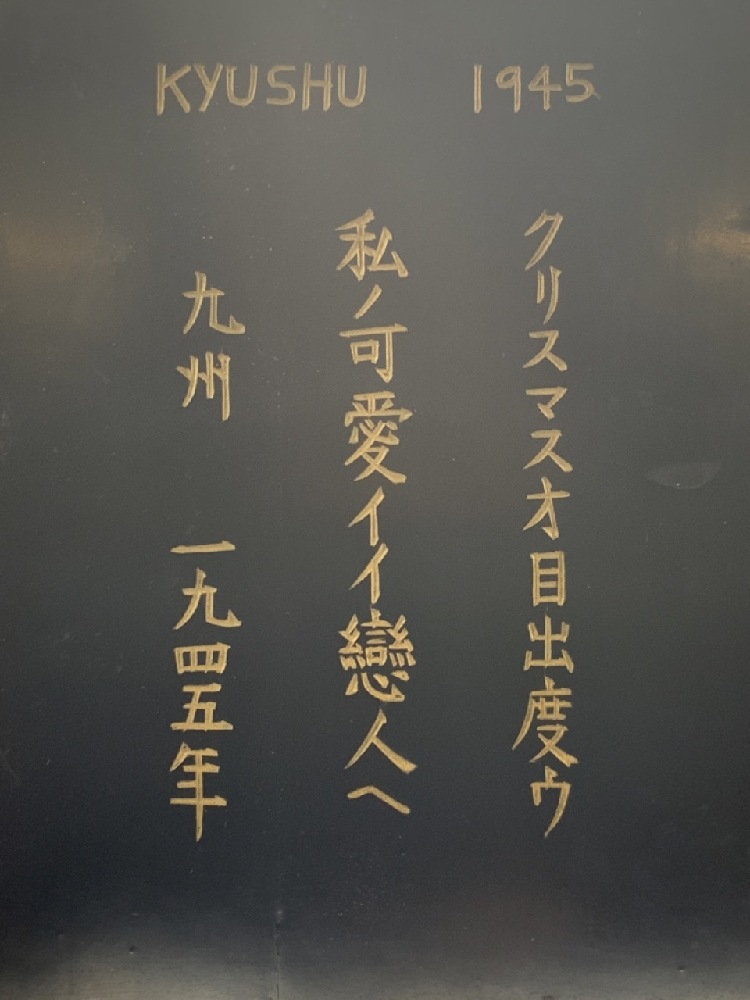 KYUSHU 1945
クリスマスオ目出度ウ
私ノ可愛イイ戀人へ
九州 一九四五年